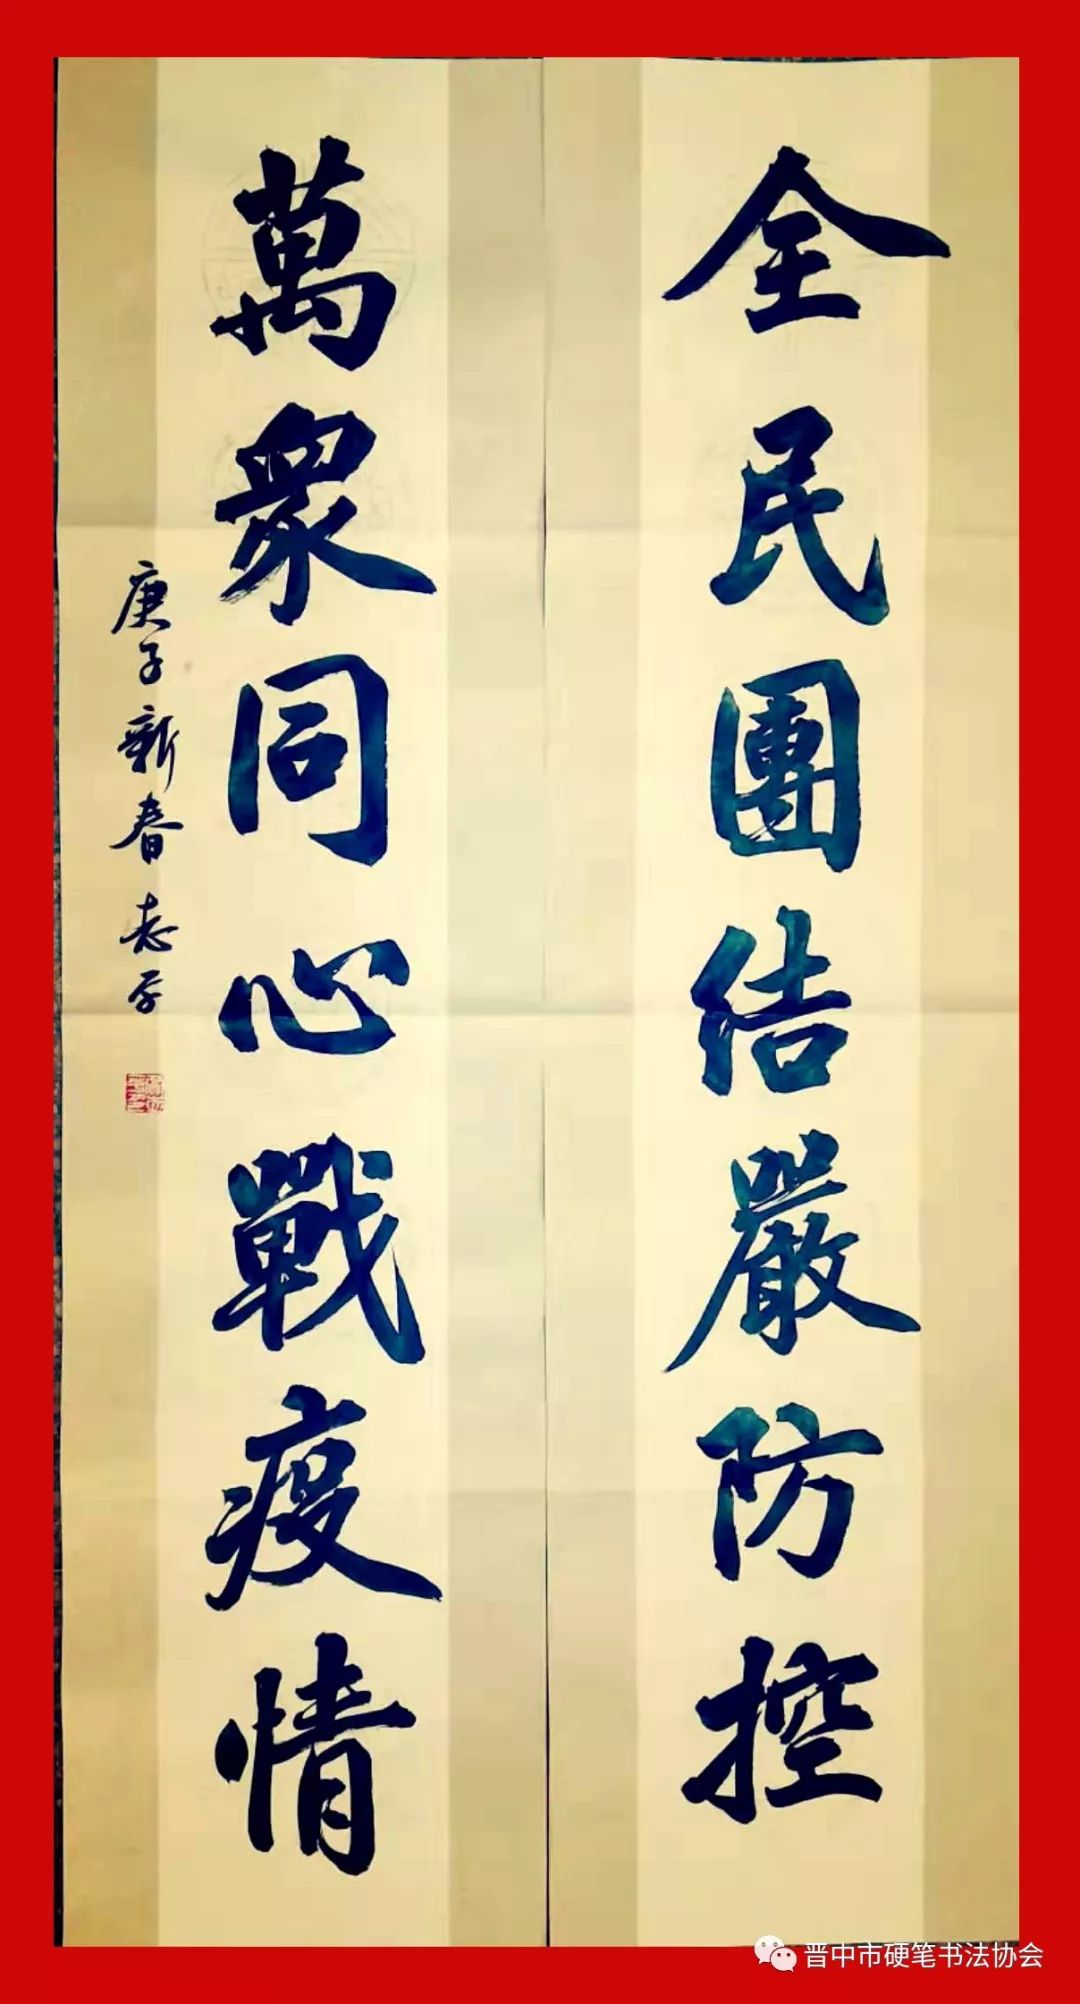 全民團結嚴防控
萬衆同心戰疫情
庚子新春志学
晋中市硬笔书法协会